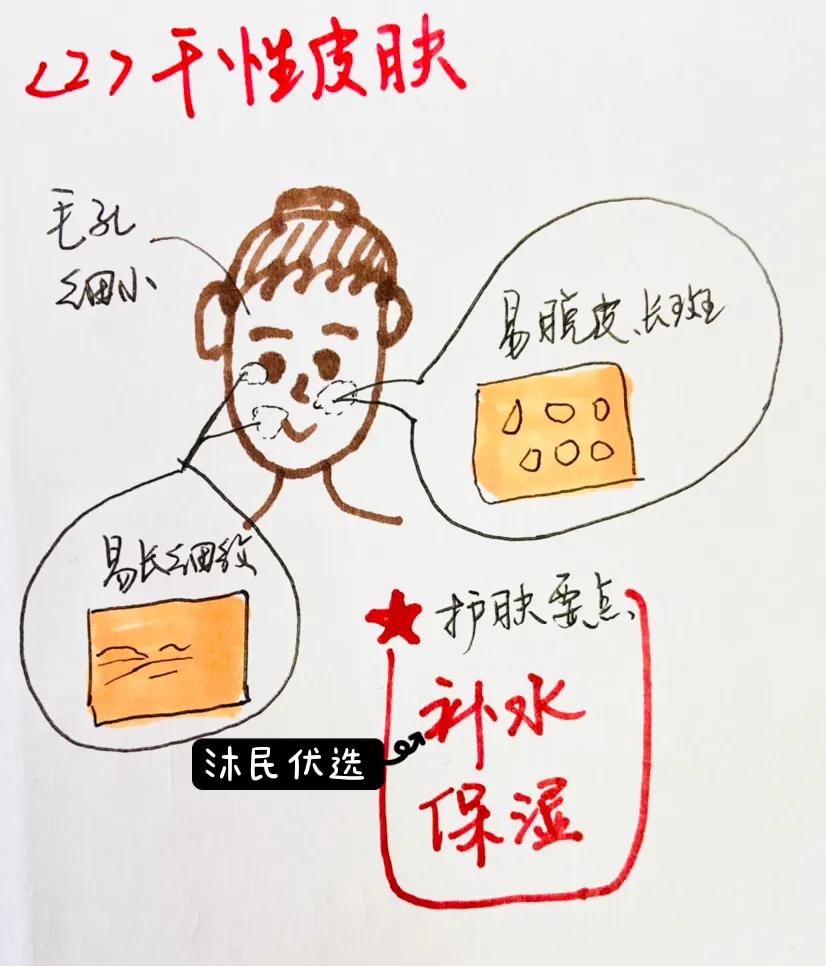 <2>干性皮肤
毛孔
细小
易脱皮、长斑
易长细纹
护肤要点
补水
沐民优选
保湿